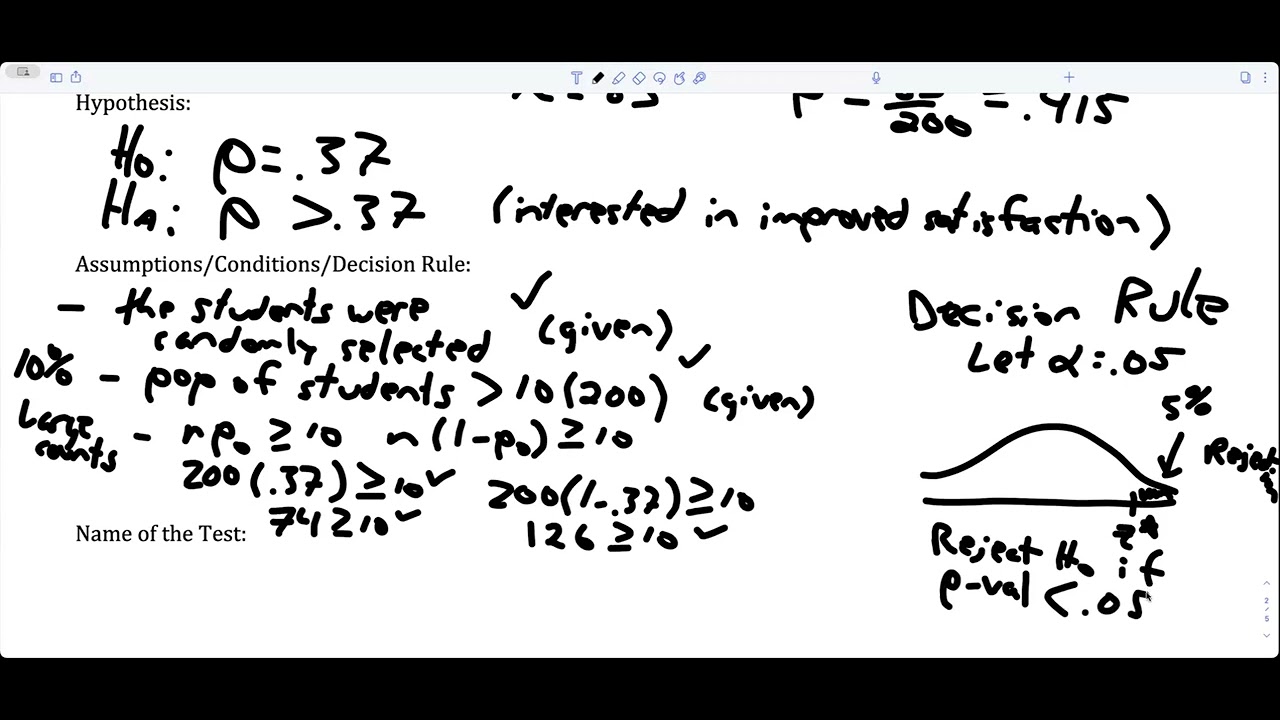 Hypothesis:
200 = .415
H0: p = .37
HA: p > .37 (interested in improved satisfaction)
Assumptions/Conditions/Decision Rule:
- the students were randomly selected ✓ (given)
10% - pop of students > 10(200) ✓ (given)
Large counts - np0 ≥ 10 n(1-p0) ≥ 10
200(.37) ≥ 10 ✓ 200(1-.37) ≥ 10
74 ≥ 10 ✓ 126 ≥ 10 ✓
Name of the Test:
Decision Rule
Let α = .05
5%
Reject
z*
Reject H0 if
p-val < .05
2
5